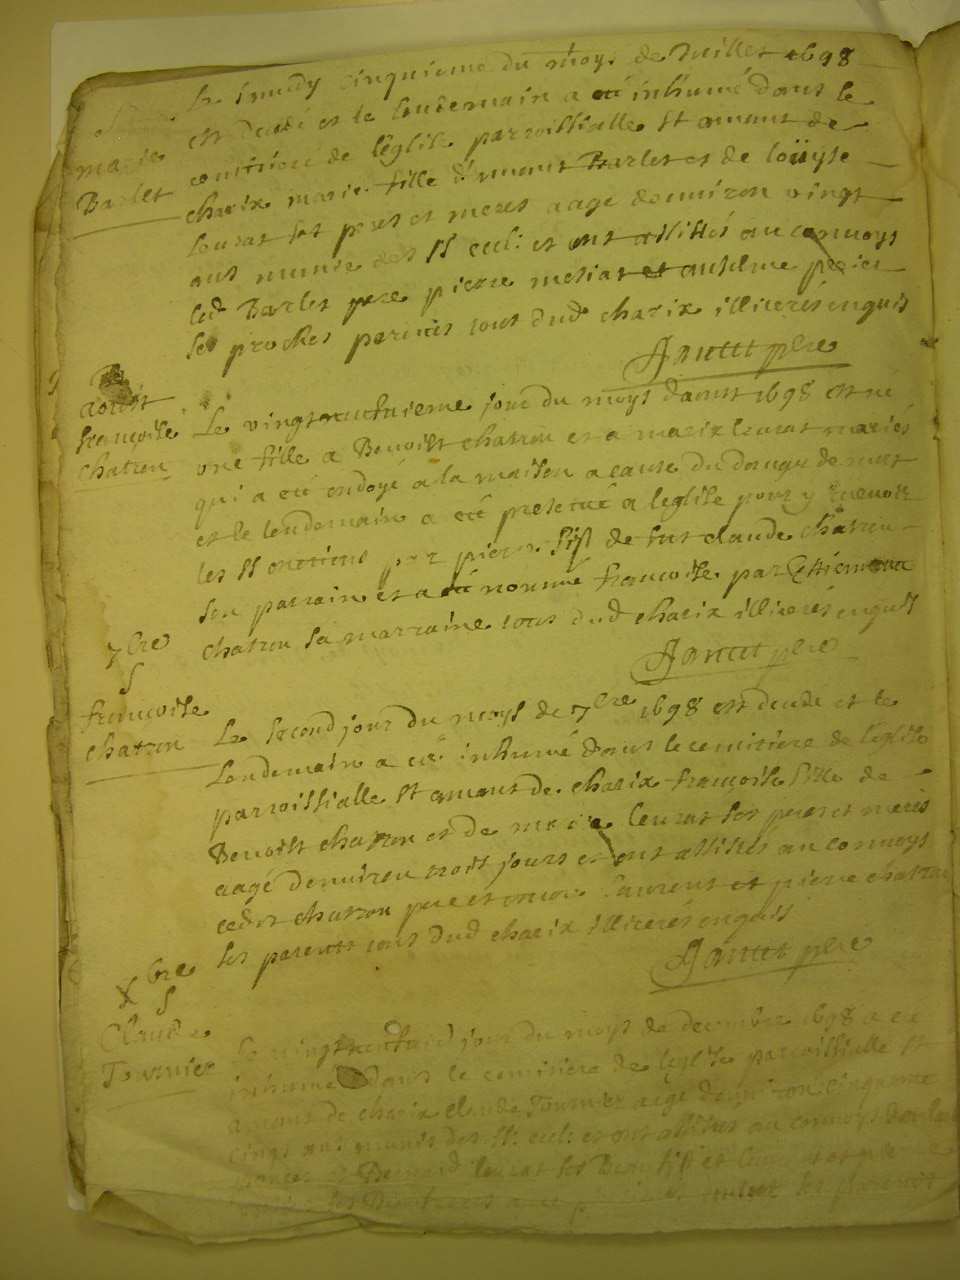 Le cinquieme du moys de Juillet 1698
est decedé et le lendemain a eté inhumé dans le
marie
cemitiere de l'eglise parroissialle st amant de
Barlet
charix marie fille d'emmant Barlet et de loüyse
leurat ses peres et meres aage denuiron vingt
ans munie des SS eccl: et ont assistés au conuoys
led Barlet pere pierre mesiat et anselme perier
ses proches parents tous dud charix illiterés enquis
Janttet pbre
aoust
françoise
Le vingt jour du moys daoust 1698 est né
chatron
une fille a Benoist chatron et a marie leurat mariés
qui a eté ondoyé a la maison a cause du danger de mort
et le lendemain a eté presenté a leglise pour y receuoir
les SS onctions par pierre fils de fut claude chatron
son parrain et a eté nommé francoise par Estiennette
chatron sa marraine tous dud charix illiterés enquis
Janttet pbre
7bre
S
françoise
chatron
Le second jour du moys de 7bre 1698 est decedé et le
lendemain a eté inhumé dans le cemitiere de l'eglise
parroissialle st amant de charix françoise fille de
Benoist chatron et de marie leurat ses peres et meres
aagé denuiron troit jours et ont assistés au conuoys
ledit chatron pere et laurent et pierre chatron
ses parents tous dud charix illiterés enquis
Janttet pbre
Xbre
S
Claude
Tournier
Le vingt jour du moys de decembre 1698 a eté
inhumé dans le cemitiere de leglise parroissialle st
amant de charix claude Tournier aagé denuiron cinquante
cinqt ans munis des SS: eccl: et ont assistés au conuoys
Bernard leurat ses Beau fils et
ses parents